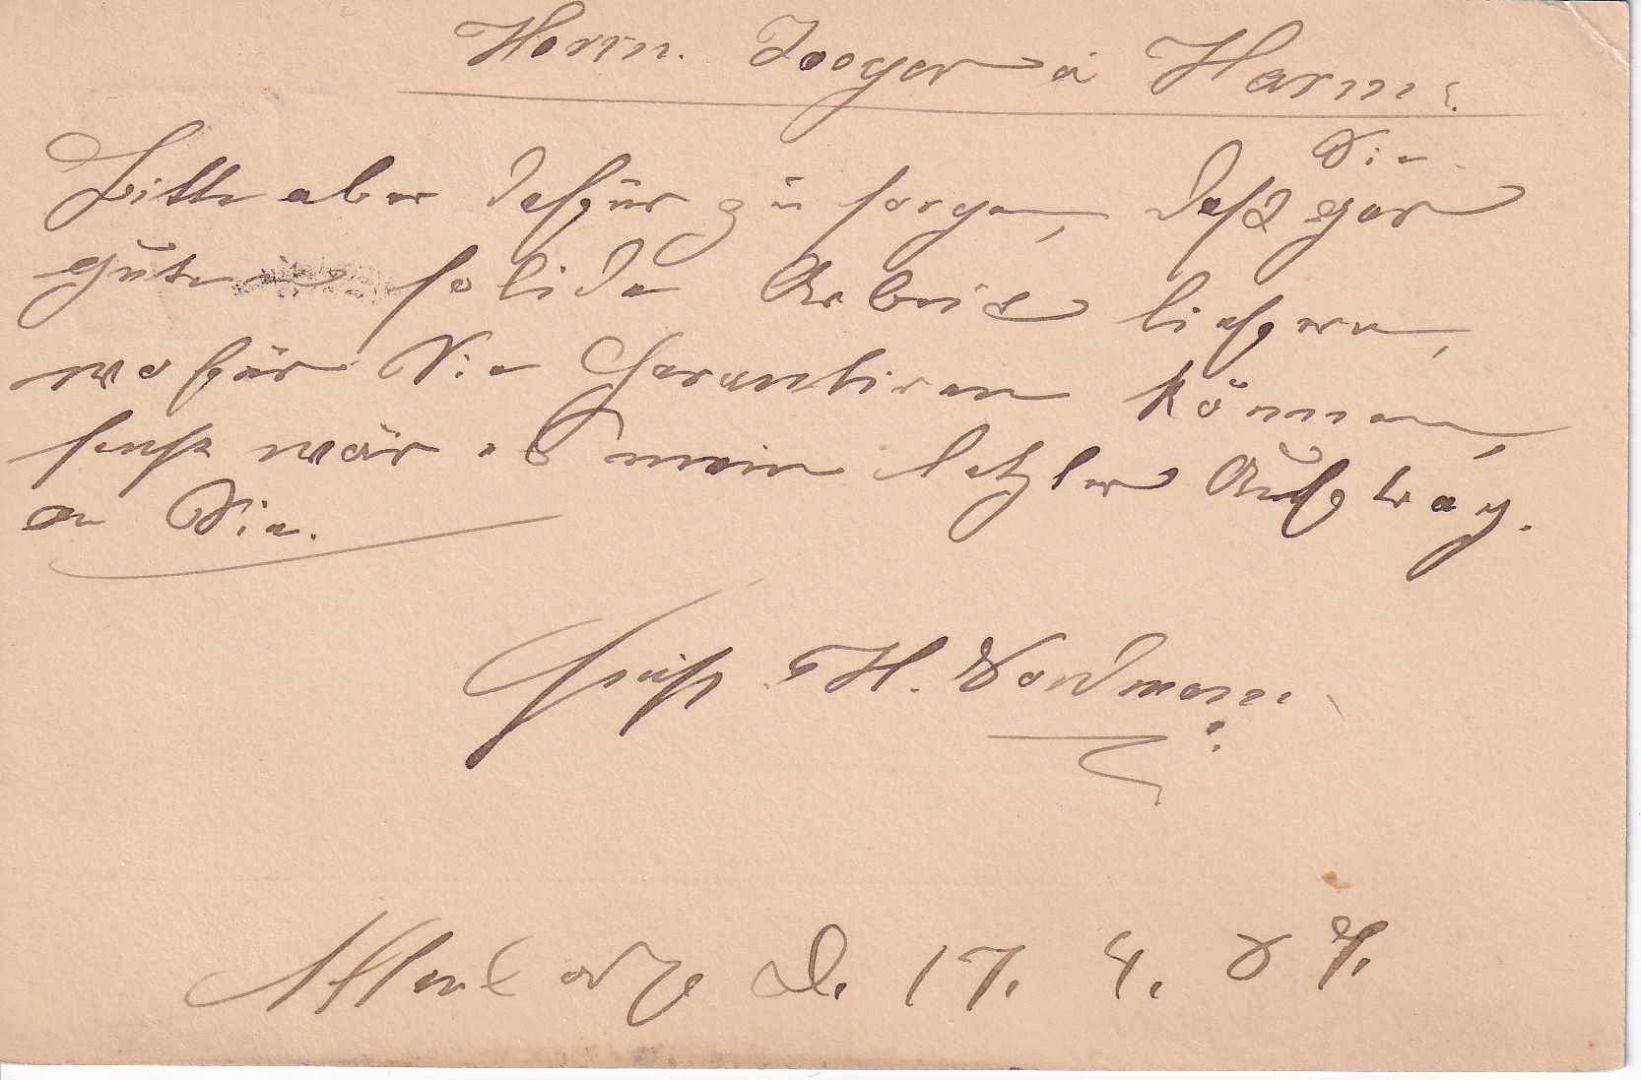 Herrn. Jaeger & Harms.
Bitte aber dafür zu sorgen, daß Sie gar
gute solide Arbeit liefern,
wofür Sie Garantiren können,
sonst wär es mein letzter Auftrag.
an Sie.
H. Nordmann.
d. 17. 4. 87.